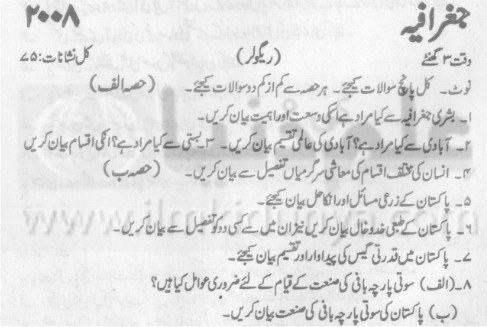 جغرافیہ
۲۰۰۸
وقت ۳ گھنٹے (ریگولر) کل نشانات: ۷۵
نوٹ۔ کل پانچ سوالات کیجئے۔ ہر حصہ سے کم از کم دو سوالات کیجئے۔ (حصہ الف)
۱۔ بشری جغرافیہ سے کیا مراد ہے اسکی وسعت اور اہمیت بیان کریں۔
۲۔ آبادی سے کیا مراد ہے؟ آبادی کی عالمی تقسیم بیان کریں۔ ۳۔ بستی سے کیا مراد ہے؟ انکی اقسام بیان کریں
۴۔ انسان کی مختلف اقسام کی معاشی سرگرمیاں تفصیل سے بیان کریں۔ (حصہ ب)
۵۔ پاکستان کے زرعی مسائل اور انکا حل بیان کیجئے۔
۶۔ پاکستان کے طبعی خدوخال بیان کریں نیز ان میں سے کسی دو کو تفصیل سے بیان کریں۔
۷۔ پاکستان میں قدرتی گیس کی پیداوار اور تقسیم بیان کیجئے۔
۸۔ (الف) سوتی پارچہ بانی کی صنعت کے قیام کے لئے ضروری عوامل کیا ہیں؟
(ب) پاکستان کی سوتی پارچہ بانی کی صنعت بیان کریں۔
علم کی دنیا
www.ilmkidunya.com